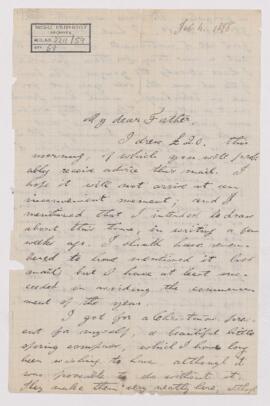 Feb. 4. 1888
McGILL UNIVERSITY
ARCHIVES
ACC. NO. 2211/59
REF. 69
My dear Father,
I drew £20. this
morning, of which you will prob-
ably receive advice this mail. I
hope it will not arrive at an
inconvenient moment; and I
mentioned that I intended to draw
about this time, in writing a few
weeks ago. I should have remem-
bered to have mentioned it last
mail; but I have at last suc-
ceeded in avoiding the commence-
ment of the year.
I got for a Christmas pres-
ent for myself, a beautiful little
spring compass, which I have long
been wishing to have although it
was possible to do without it.
They make them very neatly here, &